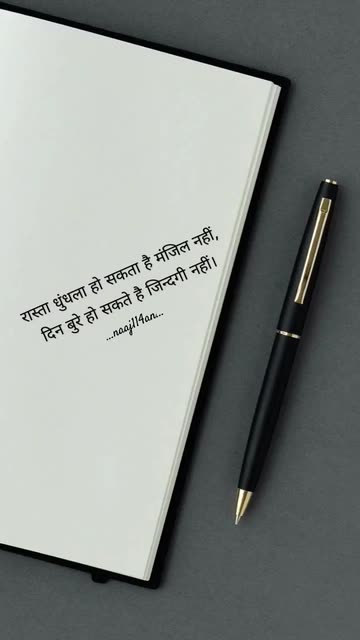 रास्ता धुंधला हो सकता है मंजिल नहीं,
दिन बुरे हो सकते है जिन्दगी नहीं।
...naaj114an...